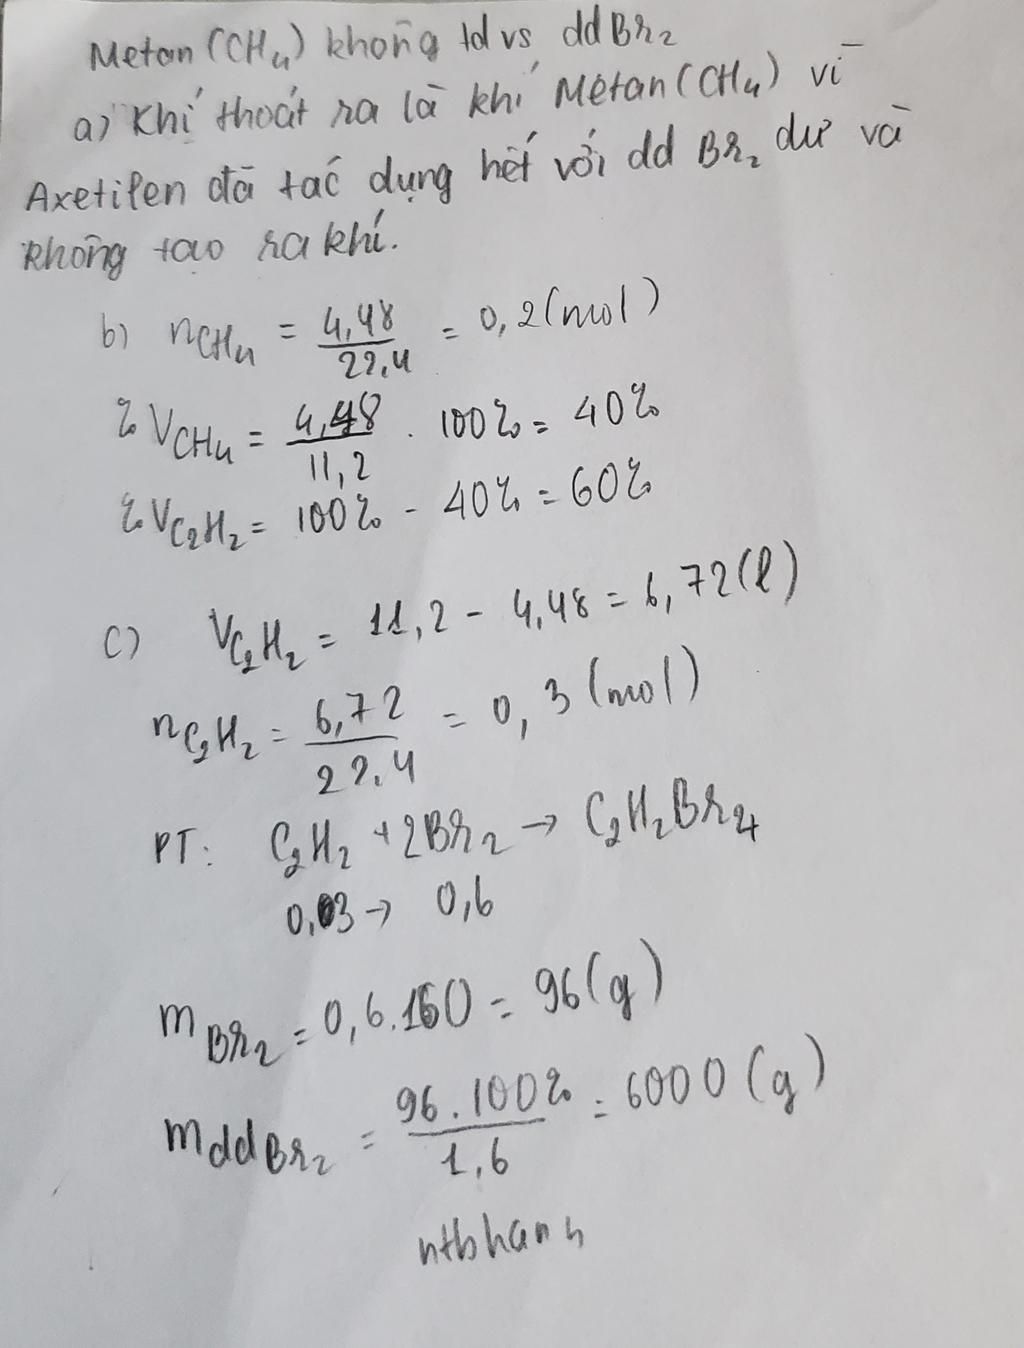 Metan (CH4) không td vs dd Br2
a) Khí thoát ra là khí Mêtan (CH4) vì
Axetilen đã tác dụng hết với dd Br2 dư và
không tạo ra khí.
b) nCH4 = 4,48/22,4 = 0,2 (mol)
%VCH4 = 4,48/11,2 . 100% = 40%
%VC2H2 = 100% - 40% = 60%
c) VC2H2 = 11,2 - 4,48 = 6,72 (l)
nC2H2 = 6,72/22,4 = 0,3 (mol)
PT: C2H2 + 2Br2 → C2H2Br4
0,03 → 0,6
mBr2 = 0,6.160 = 96 (g)
mddBr2 = 96.100%/1,6 = 6000 (g)
ntbhanh